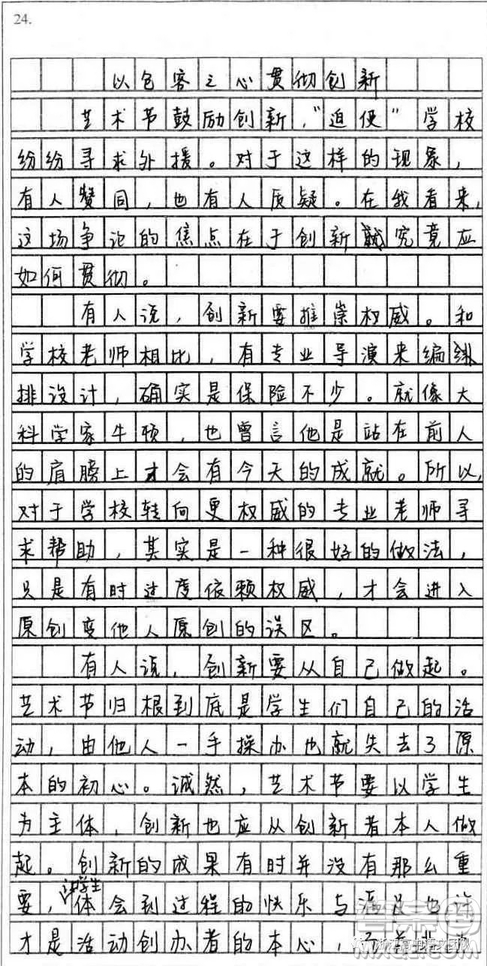 24.
以包容之心贯彻创新
艺术节鼓励创新，"迫使"学校
纷纷寻求外援。对于这样的现象，
有人赞同，也有人质疑。在我看来，
这场争论的焦点在于创新究竟应
如何贯彻。
有人说，创新要推崇权威。和
学校老师相比，有专业导演来编排
排设计，确实是保险不少。就像大
科学家牛顿，也曾言他是站在前人
的肩膀上才会有今天的成就。所以，
对于学校转向更权威的专业老师寻
求帮助，其实是一种很好的做法，
只是有时过度依赖权威，才会进入
原创变他人原创的误区。
有人说，创新要从自己做起。
艺术节归根到底是学生们自己的活
动，由他人一手操办也就失去了原
本的初心。诚然，艺术节要以学生
为主体，创新也应从创新者本人做
起。创新的成果有时并没有那么重
要，让学生体会到过程的快乐与
才是活动创办者的本心，